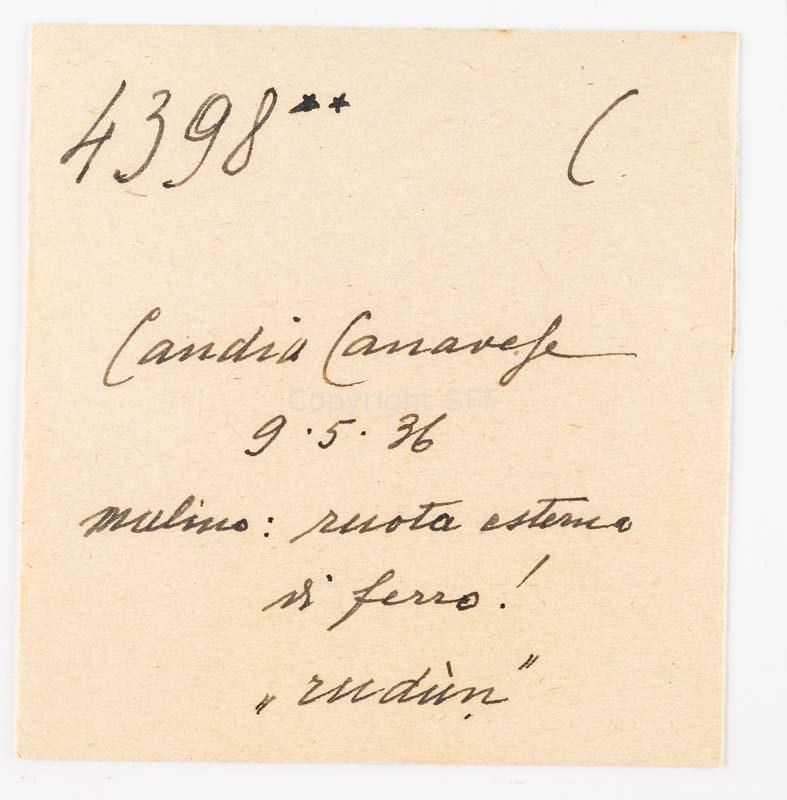 4398** C.
Candia Canavese
Copyright SFF
9.5.36
mulino: ruota esterna
di ferro!
„rudùn"